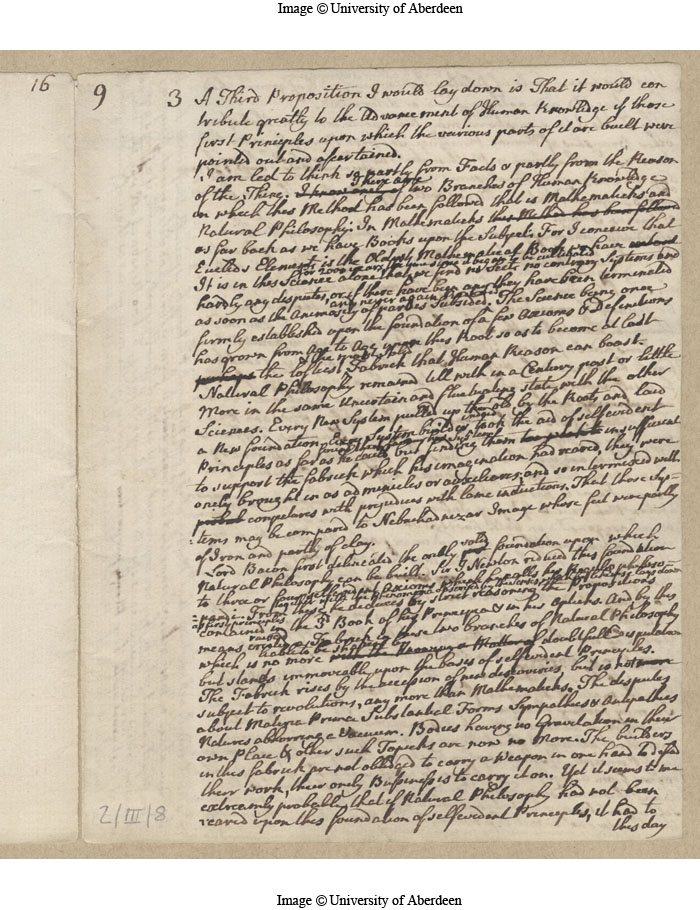 Image © University of Aberdeen
16
9
3 A Third Proposition I would lay down is That it would con
tribute greatly to the advancement of Human Knowledge if those
first Principles upon which the various parts of it are built were
pointed out and ascertained.
I am led to think so partly from Facts & partly from the Reason
of the Thing. I know one of There are two Branches of Human Knowledge
in which this Method has been followed that is Mathematicks and
Natural Philosophy: In Mathematicks this Method has been followed
as far back as we have Books upon the Subject. For I conceive that
Euclids Elements is the Oldest Mathematical Book we have
It is in this Science alone that we find no sects no contrary Systems and
for 2000 years
hardly any disputes, or if there have been any they have been terminated
as soon as the animosity of parties subsided. The Science being once
and never again revived
firmly established upon the foundation of a few Axioms & Definitions
has grown from Age to Age upon this Root so as to become at last
perhaps the loftiest Fabrick that Human Reason can boast.
Natural Philosophy remained till with in a Century past or little
More in the same Uncertain and fluctuating state with the other
Sciences. Every New System pulled up the old by the Roots and laid
a New foundation. Every System builder took the aid of selfevident
Principles as far as he could but finding them insufficient
to support the fabrick which his imagination had reared, they were
onely brought in as adminicles or auxiliaries, and so intermixed with
conjectures with prejudices with lame inductions, That those Sys-
tems may be compared to Nebuchadnezar Image whose feet were partly
of Iron and partly of clay.
Lord Bacon first delineated the onely solid foundation upon which
Natural Philosophy can be built. Sr I Newton reduced this foundation
to three or four selfevident Axioms which he calls his Regulae philoso-
phandi. From these he deduces by strict reasoning the Propositions
contained in the 3d Book of his Principia & in his Opticks. And by this
means raised a Fabrick in these two branches of Natural Philosophy
which is no more liable to be shaken by doubtfull disputation
but stands immoveably upon the basis of selfevident Principles.
The Fabrick rises by the accession of new discoveries, but is not more
subject to revolutions, any more than Mathematicks. The disputes
about Materia Prima Substantial Forms Sympathies & Antipathies
Natures abhorring a Vacuum. Bodies having no Gravitation in their
own place & other such Topicks are now no More. The builders
in this fabrick are not obliged to carry a Weapon in one hand to defend
their work, their onely Bussiness is to carry it on. Yet it seems to me
extreamly probable, that if Natural Philosophy had not been
reared upon this foundation of selfevident Principles, it had to
this day
2/III/8
Image © University of Aberdeen